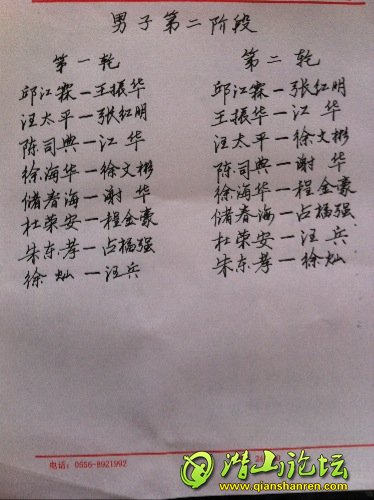 男子第二阶段
第一轮
邱江霖—王振华
汪太平—张红明
陈司典—江华
徐海华—徐文彬
储春海—谢华
杜荣安—程金豪
朱东孝—占福强
徐灿—汪兵
第二轮
邱江霖—张红明
王振华—江华
汪太平—徐文彬
陈司典—谢华
徐海华—程金豪
储春海—占福强
杜荣安—汪兵
朱东孝—徐灿
电话:0556-8921992
潜山论坛
www.qianshanren.com